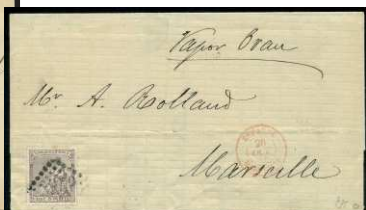 Vapor Oran
Mr. A. Rolland
Marseille